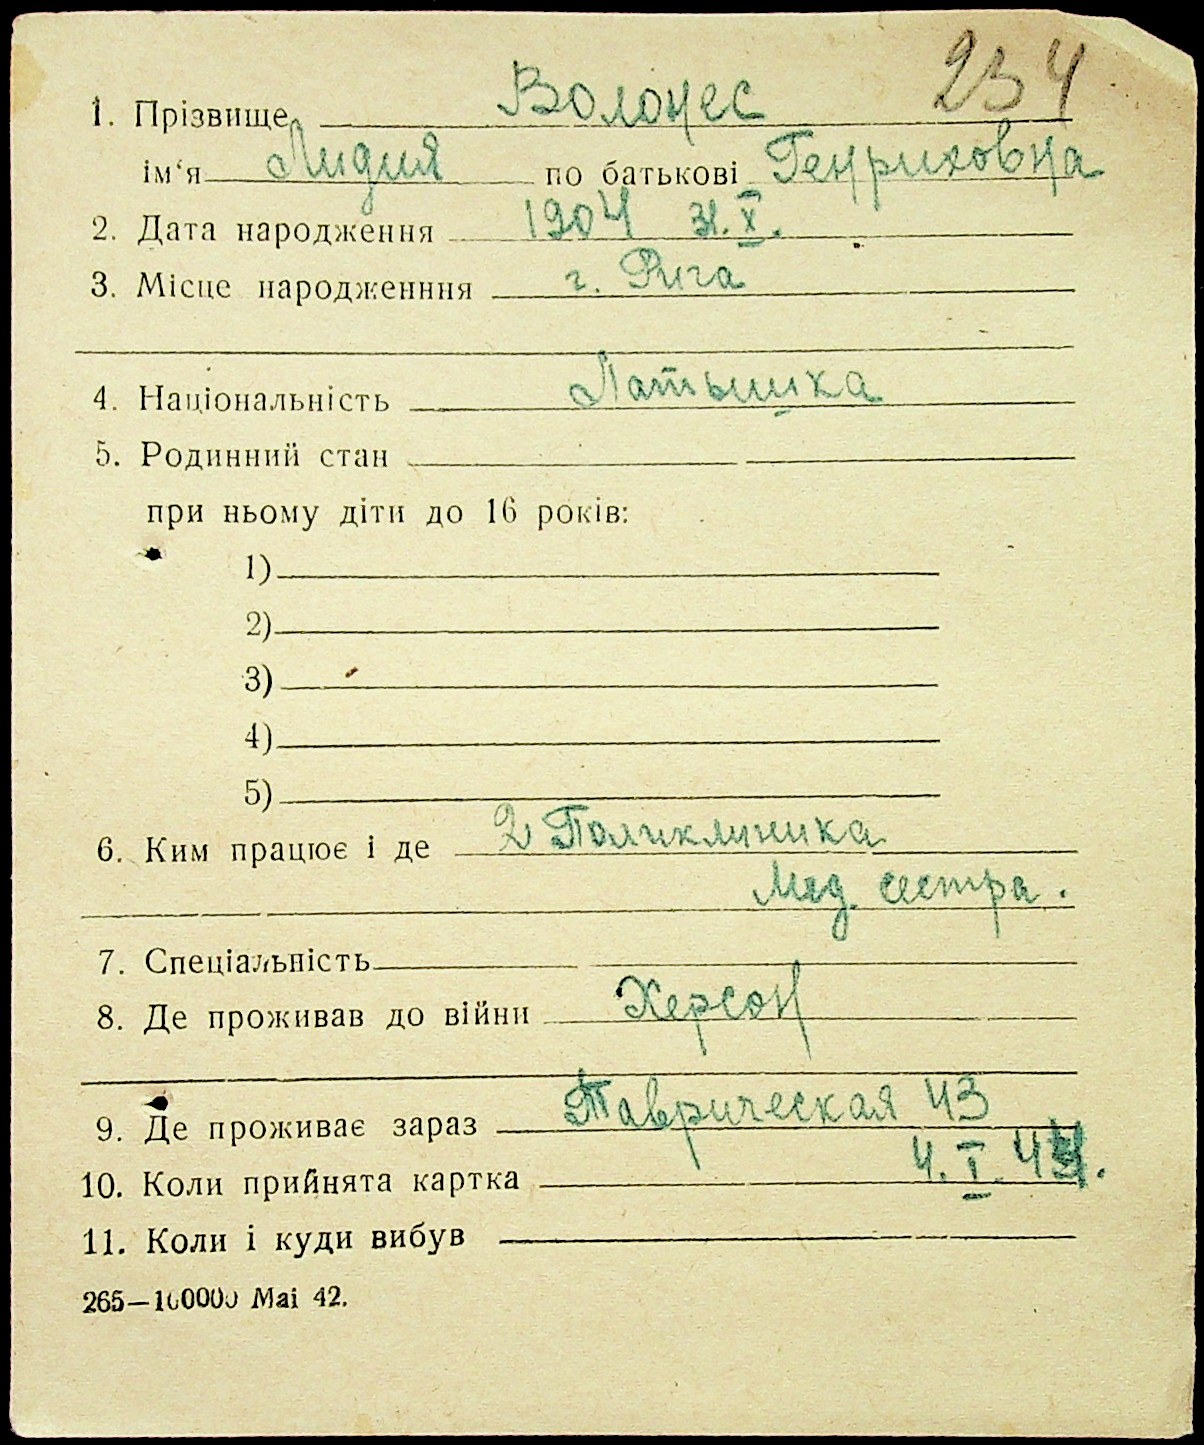 234
1. Прізвище Волонес
ім‘я Лидия по батькові Генриховна
2. Дата народження 1904 31.X.
3. Місце народженння г. Рига
4. Національність Латышка
5. Родинний стан
при ньому діти до 16 років:
1)
2)
3)
4)
5)
6. Ким працює і де 2 Поликлиника
Мед. сестра.
7. Спеціальність
8. Де проживав до війни Херсон
9. Де проживає зараз Таврическая 43
10. Коли прийнята картка 4. I. 44.
11. Коли і куди вибув
265—100000 Маі 42.